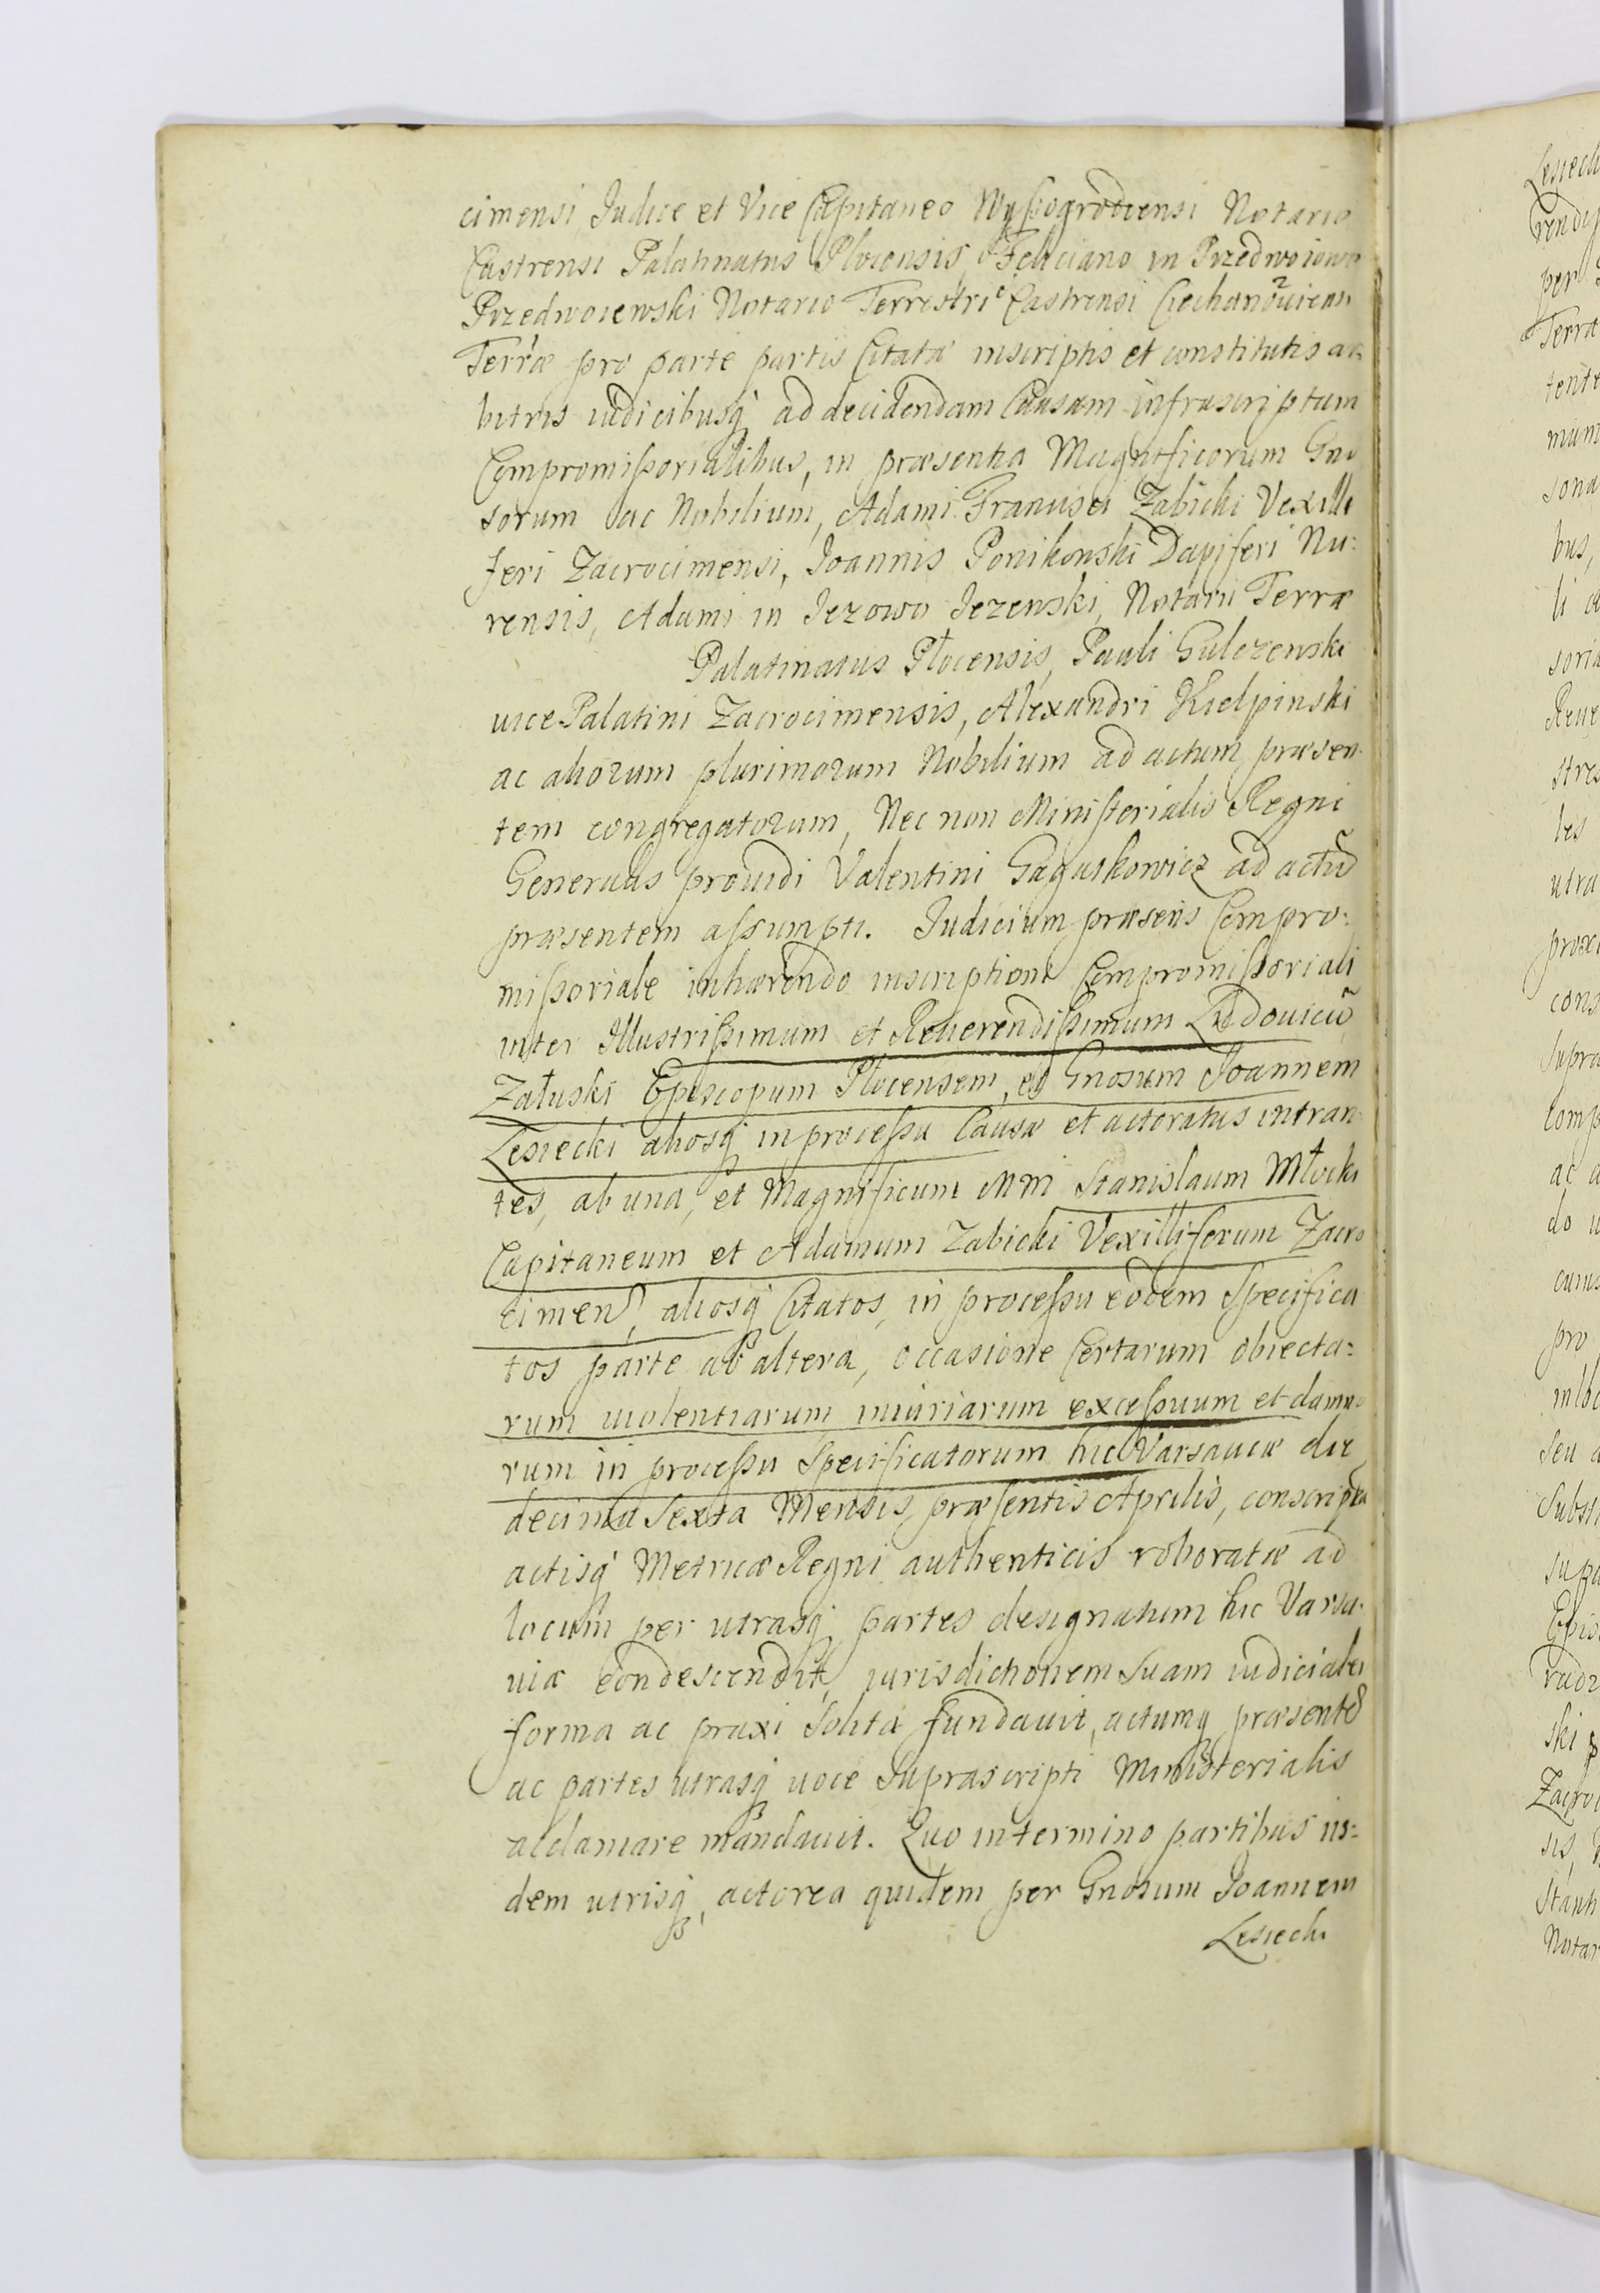 cimensi Judice et Vice Capitaneo Wyszogrodiensi Notario
Castrensi Palatinatus Plocensis, Feliciano in Przedwoiowo
Przedwoiewski Notario Terrestri Castrensi Ciechanouiens
Terræ pro parte partis Citatæ inscriptis et constitutis ar
bitris iudicibusq ad decidendam Causam infrascriptam
Compromissorialibus, in præsentia Magnificorum Gno
sorum ac Nobilium, Adami Francisci Zabicki Vexilli
feri Zacrocimensi, Joannis Ponikowski Dapiferi Nu:
rensis, Adami in Jezowo Jezewski, Notarii Terræ
Palatinatus Płocensis, Pauli Gulczewski
uice Palatini Zacrocimensis, Alexandri Kielpinski
ac aliorum plurimorum Nobilium ad actum præsen
tem congregatorum, Nec non Ministerialis Regni
Generalis prouidi Valentini Gaguskowicz ad actũ
præsentem assumpti. Judicium præsens Compro:
missoriale inhærendo inscriptioni Compromissoriali
inter Illustrissimum et Reuerendissimum Ludouicũ
Załuski Episcopum Plocensem, et Gnosum Joannem
Lesiecki aliosq in processu Causæ et actoratus intran
tes, ab una, et Magnificum Mm Stanislaum Młocki
Capitaneum et Adamum Zabicki Vexilliferum Zacro
cimens, aliosq Citatos, in processu eodem Specifica
tos parte ab altera, occasione Certarum obiecta:
rum uiolentiarum iniuriarum excessuum et damno
rum in processu Specificatorum hic Varsauiæ die
decima Sexta Mensis præsentis Aprilis, conscriptæ
actisq Metricæ Regni authenticis roboratæ ad
locum per utrasq partes designatum hic Varsa.
uiæ condescendit, iurisdictionem Suam iudicialem
forma ac praxi Solita fundauit, actumq præsente
ac partes utrasq uoce Suprascripti Ministerialis
acclamare mandauit. Quo in termino partibus iis:
dem utrisq, actorea quidem per Gnosum Joannem
Lesiecki